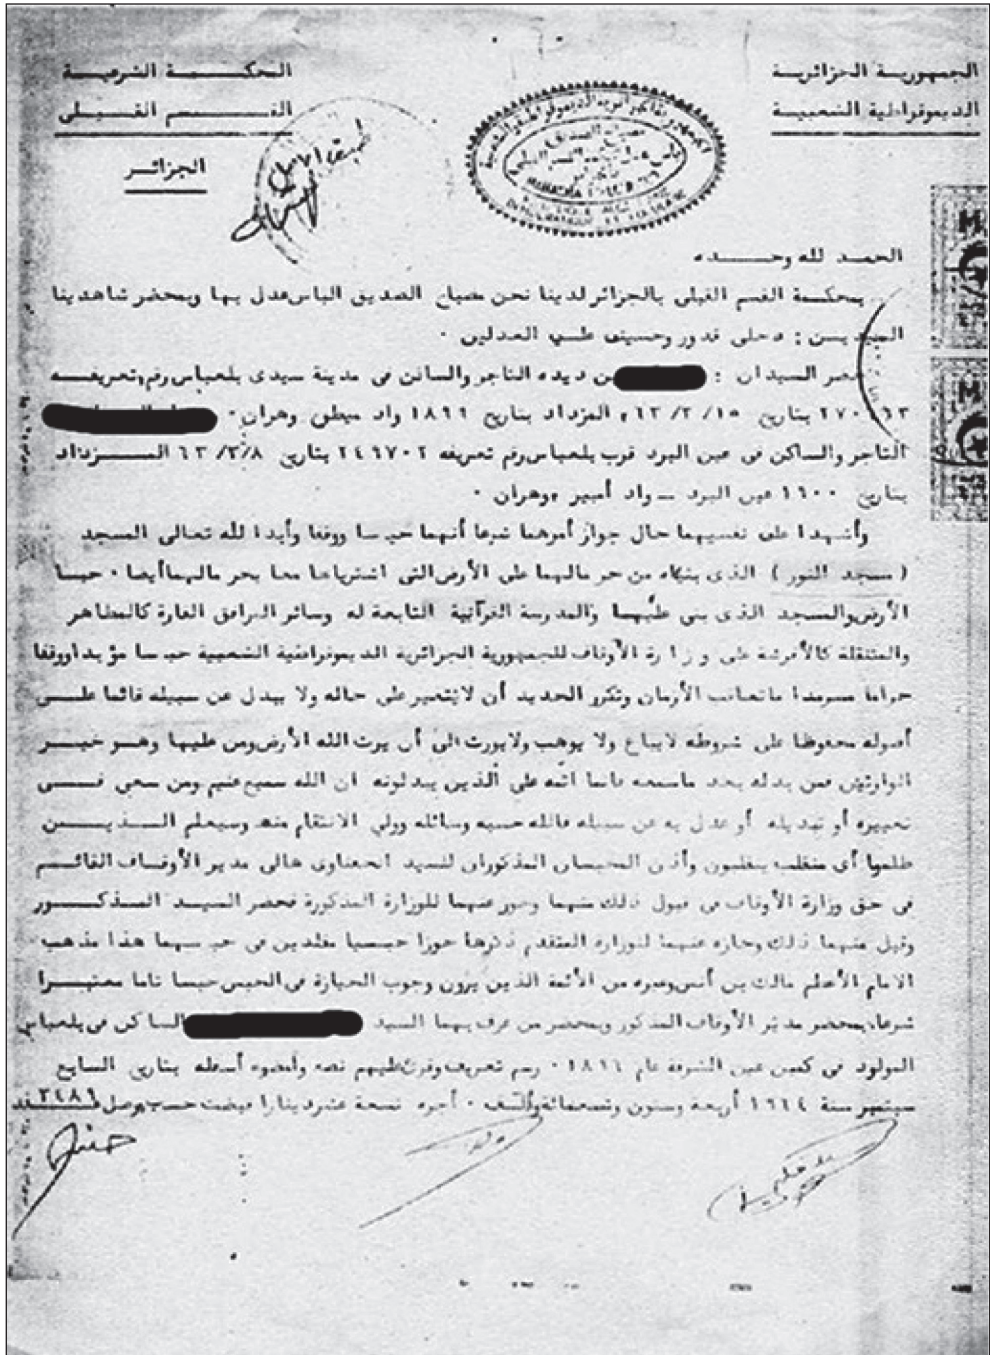 الجمهورية الجزائرية
الديموقراطية الشعبية
المحكمة الشرعية
القسم القبلي
الجزائر
الحمد لله وحده
بمحكمة القسم القبلي بالجزائر لدينا نحن مصباح الصديق الياس عدل بها وبمحضر شاهدينا
السيدين : دحلى قدور وحسينى على العدلين ٠
حضر السيدان : بن ديده التاجر والساكن فى مدينة سيدى بلعباس رقم تعريفه
بتاريخ ١٥/٢/٦٣ المزداد بتاريخ ١٨٩٩ واد وهران ٠
التاجر والساكن فى عين البرد قرب بلعباس رقم تعريفه ٢٤٦٧٠٢ بتاريخ ٦٣/٣/٨ المزداد
بتاريخ ١٩٠٠ عين البرد ــ واد أمبير ،وهران ٠
وأشهدا على نفسيهما حال جواز أمرهما شرعا أنهما حبسا ووقفا وأبدا لله تعالى المسجد
( مسجد النور ) الذى بنياه من حر مالهما على الأرض التى اشترياها معا بحر مالهما أيضا ٠ حبسا
الأرض والمسجد الذى بنى عليها والمدرسة القرآنية التابعة له وسائر المرافق القارة كالمطاهر
والمتنقلة كالأفرشة على وزارة الأوقاف للجمهورية الجزائرية الديموقراطية الشعبية حبسا مؤبدا ووقفا
حراما سرمدا ما تعاقب الأزمان وتكرر الجديد أن لا يتغير على حاله ولا يبدل عن سبيله قائما على
أصوله محفوظا على شروطه لا يباع ولا يوهب ولا يورث الى أن يرث الله الأرض ومن عليها وهو خير
الوارثين فمن بدله بعد ما سمعه فانما اثمه على الذين يبدلونه ان الله سميع عليم ومن سعى فى
تغييره أو تبديله أو عدل به عن سبيله فالله حسبه وسائله وولي الانتقام منه وسيعلم الذين
ظلموا أى منقلب ينقلبون وأذن المحبسان المذكوران للسيد الحفناوى هالى مدير الأوقاف القائم
فى حق وزارة الأوقاف فى قبول ذلك منهما وحوز عنهما للوزارة المذكورة فحضر السيد المذكور
وقبل منهما ذلك وحازه عنهما لوزارة المتقدم ذكرها حوزا حبسيا مقلدين فى حبسهما هذا مذهب
الامام الأعظم مالك بن أنس وغيره من الأئمة الذين يرون وجوب الحيازة فى الحبس حبسا تاما معتبرا
شرعا، بمحضر مدير الأوقاف المذكور وبمحضر من عرف بهما السيد الساكن فى بلعباس
المولود فى عين عام ١٨٩٦ ٠ رسم تعريف وقرئ عليهم نصه وأمضوه أسفله بتاريخ السابع
سبتمبر سنة ١٩٦٤ أربعة وستون وتسعمائة وألف ٠ أجره نسخة عشر دينارا قبضت حسب وصل ٣٤٨٩